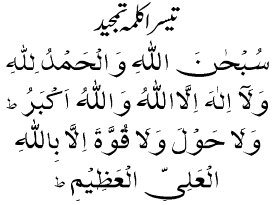 تیسرا کلمہ تمجید
سُبْحٰنَ اللّٰهِ وَالْحَمْدُ لِلّٰهِ
وَلَآ اِلٰهَ اِلَّا اللّٰهُ وَاللّٰهُ اَکْبَرُ ط
وَلَا حَوْلَ وَلَا قُوَّةَ اِلَّا بِاللّٰهِ
الْعَلِیِّ الْعَظِیْمِ ط